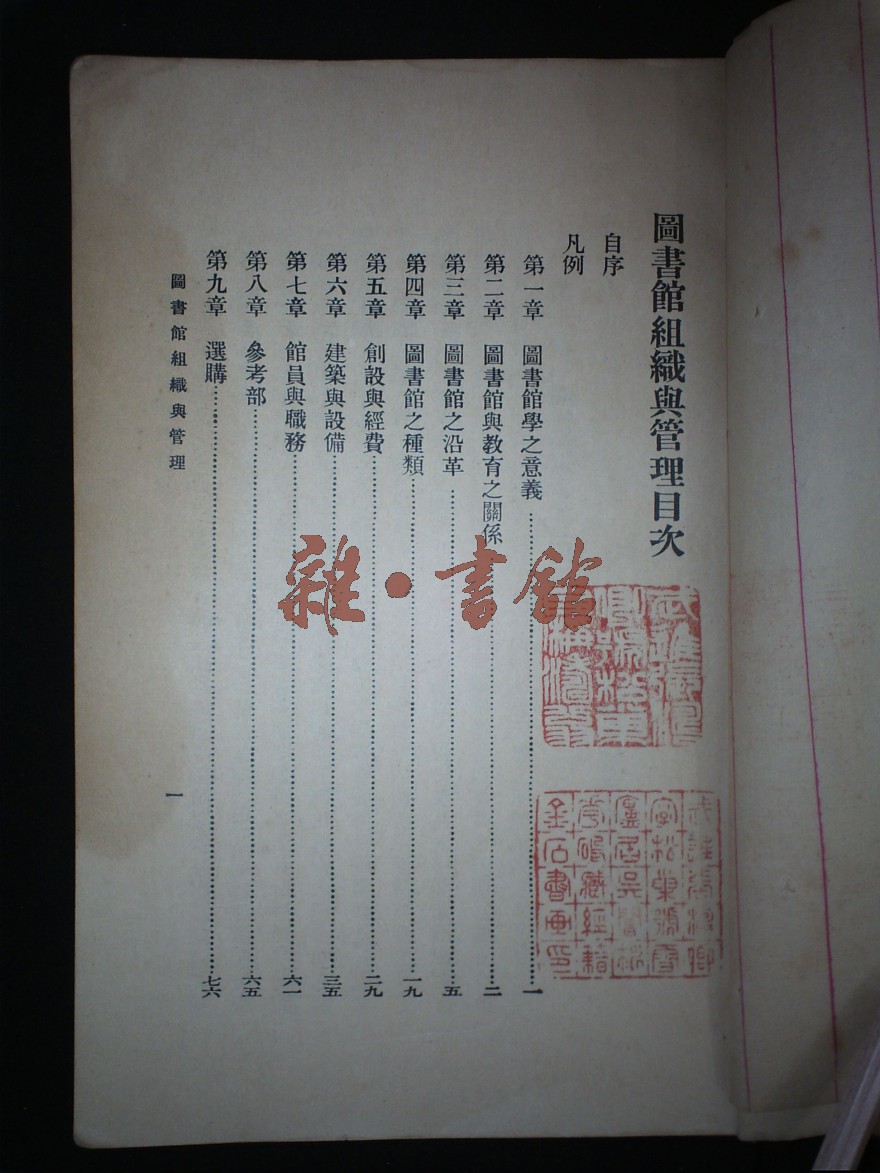 圖書館組織與管理目次
自序
凡例
第一章 圖書館學之意義……一
第二章 圖書館與教育之關係……二
第三章 圖書館之沿革……五
第四章 圖書館之種類……一九
第五章 創設與經費……二九
第六章 建築與設備……三五
第七章 館員與職務……六一
第八章 參考部……六五
第九章 選購……七六
圖書館組織與管理
一
雜·書館
金石書画印